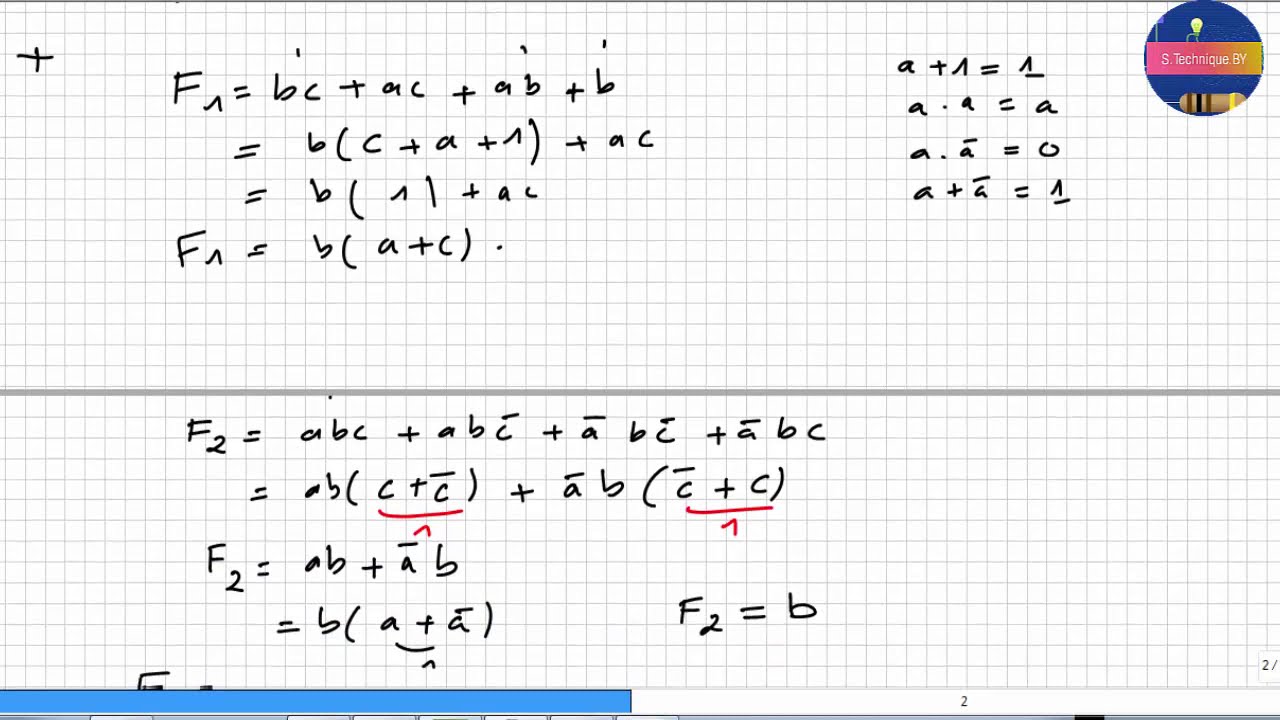 +
F₁ = bc + ac + ab + b
= b(c + a + 1) + ac
= b(1) + ac
F₁ = b(a+c).
a + 1 = 1
a . a = a
a . ā = 0
a + ā = 1
S.Technique.BY
F₂ = abc + abc̄ + ā bc̄ + ā bc
= ab(c + c̄) + ā b (c̄ + c)
1 1
F₂ = ab + ā b
= b(a + ā)
1
F₂ = b
2 /
2